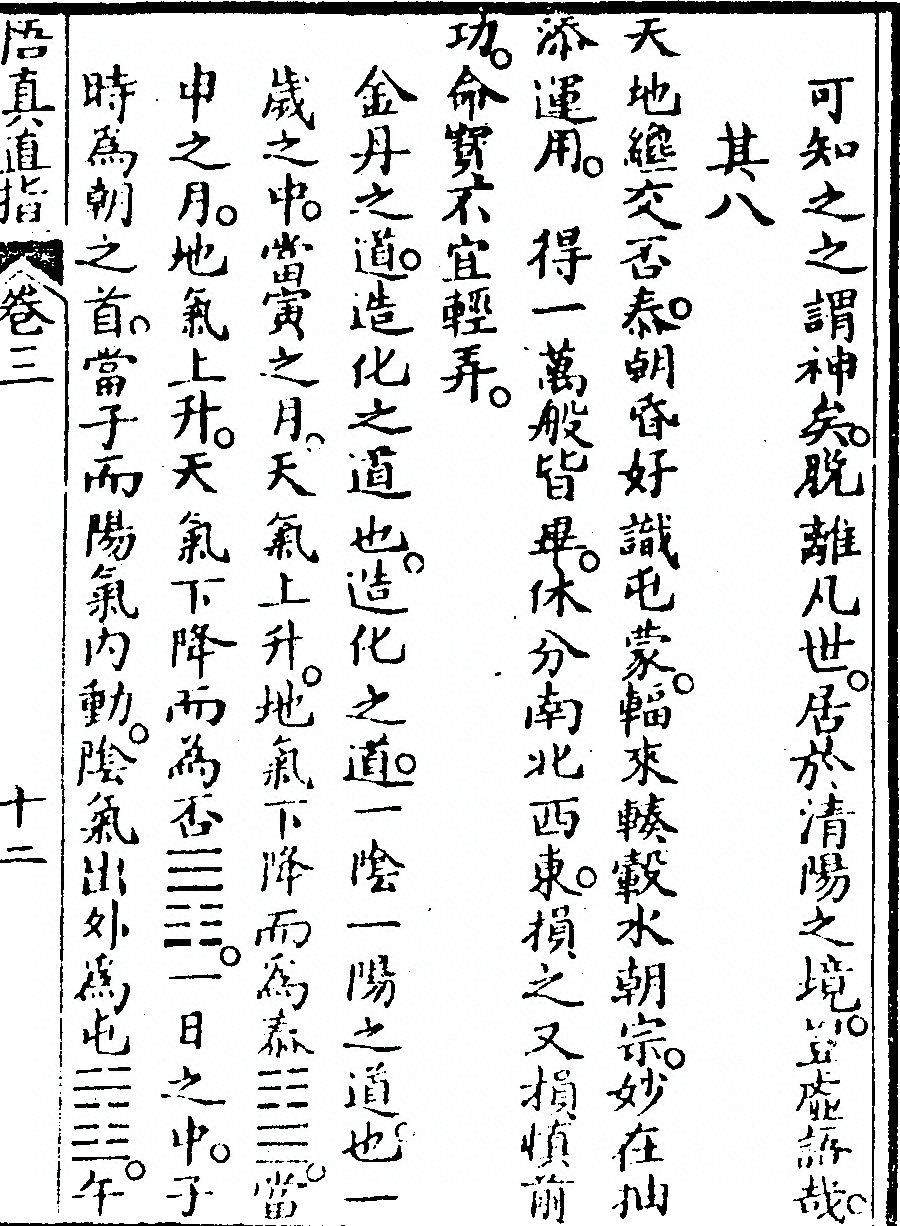 可知之之謂神矣。脫離凡世。居於清陽之境。豈虛語哉。
其八
天地纔交否泰。朝昏好識屯蒙。輻來輳轂水朝宗。妙在抽
添運用。　得一萬般皆畢。休分南北西東。損之又損慎前
功。命寶不宜輕弄。
金丹之道。造化之道也。造化之道。一陰一陽之道也。一
歲之中。當寅之月。天氣上升。地氣下降而為泰䷊。當
申之月。地氣上升。天氣下降而為否䷋。一日之中。子
時爲朝之首。當子而陽氣內動。陰氣出外爲屯䷂。午
悟真直指　卷三　十二